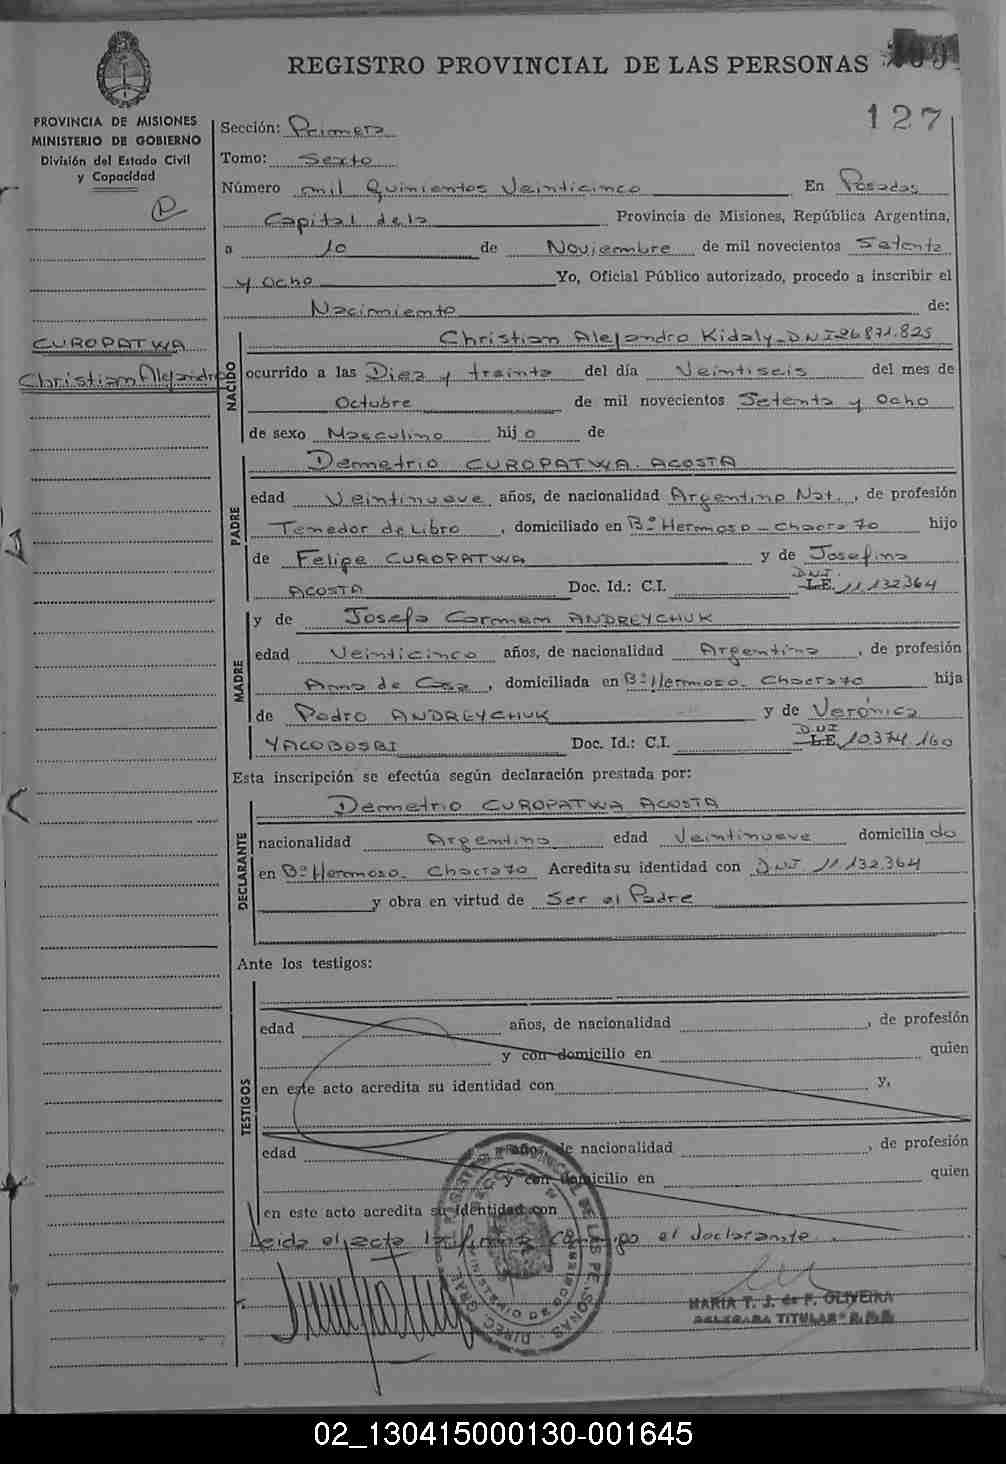 REGISTRO PROVINCIAL DE LAS PERSONAS
127
PROVINCIA DE MISIONES
MINISTERIO DE GOBIERNO
División del Estado Civil
y Capacidad
CUROPATWA
Christian Alejandro
Sección: Primera
Tomo: Sexto
Número mil Quinientos Veinticinco En Posadas
Capital de la Provincia de Misiones, República Argentina,
a 10 de Noviembre de mil novecientos Setenta
y Ocho Yo, Oficial Público autorizado, procedo a inscribir el
Nacimiento de:
NACIDO
Christian Alejandro Kidaly - DNI 26871.825
ocurrido a las Diez y treinta del día Veintiseis del mes de
Octubre de mil novecientos Setenta y Ocho
de sexo Masculino hijo de
PADRE
Demetrio CUROPATWA. ACOSTA
edad Veintinueve años, de nacionalidad Argentino Nat., de profesión
Tenedor de Libro, domiciliado en Bº Hermoso - Chacra 70 hijo
de Felipe CUROPATWA y de Josefina
ACOSTA Doc. Id.: C.I. L.E. DNI. 11.132364
MADRE
y de Josefa Carmen ANDREYCHUK
edad Veinticinco años, de nacionalidad Argentina, de profesión
Ama de Casa, domiciliada en Bº Hermoso. Chacra 70 hija
de Pedro ANDREYCHUK y de Verónica
YACOBOSBI Doc. Id.: C.I. L.E. D.N.I 10.374.160
Esta inscripción se efectúa según declaración prestada por:
DECLARANTE
Demetrio CUROPATWA ACOSTA
nacionalidad Argentino edad Veintinueve domiciliado
en Bº Hermoso. Chacra 70 Acredita su identidad con DNI 11.132.364
y obra en virtud de Ser el Padre
Ante los testigos:
TESTIGOS
edad años, de nacionalidad , de profesión
y con domicilio en quien
en este acto acredita su identidad con y,
edad años, de nacionalidad , de profesión
y con domicilio en quien
en este acto acredita su identidad con
Leida el acta la firma conmigo el declarante.
MARIA T. J. de F. OLIVEIRA
DELEGADA TITULAR
02_130415000130-001645